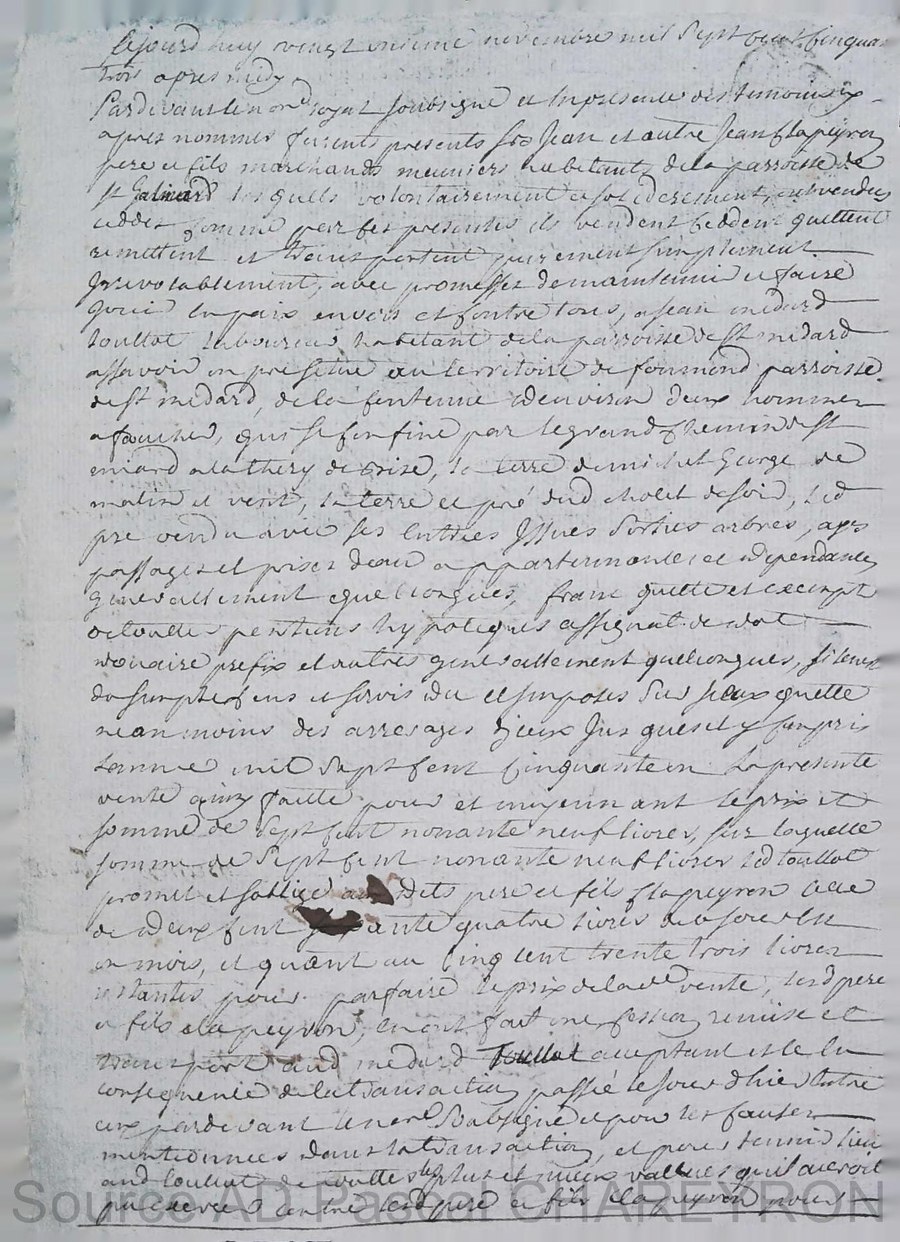 Cejourd huy vingt onzieme novembre mil Sept cent Cinquan
trois apres midy
Pardevant le no.re royal Soubsigné et En presence des temoins ix
apres nommes furents presents Srs Jean et autre Jean Clapeyron
pere et fils marchands meuniers habitants de la parroisse de
st Galmard lesquels volontairement et solidérement, ont vendus
ceddés Comme par ses presentes ils vendent Ceddent quittent
remettent et transportent purement simplement
Irrevotablement, avec promesses de maintenir et faire
jouir En paix envers et Contre tous, a Jean médard
toullot laboureur habitant de la parroisse de st medard
assavoir un pré situé au territoire de formond parroisse
de st medard, de la Contenue d'environ deux hommes
a faucher, qui se Confine par le grand Chemin de st
miard a la thery de Bize, la terre de michel George de
matin et vent, la terre et pré dud Cholet de soir, led
pré vendu avec ses Entrées Issues Sorties arbres, ayes
passages et prises d'eau appartenances et dépendances
Generallement quelconques, franc quitte et exempt
de touttes pensions hypoteques assignat de dot
douaire prefix et autres generallement quelconques, si ce n'est
du simple Cens et servis du et Imposés Sur Iceux quitte
neanmoins des arrerages d'jceux Jusques et y Compris
L'année mil Sept Cent Cinquante un La presente
vente ainsy faitte pour et moyennant le prix et
somme de Sept Cent nonante neuf livres, sur laquelle
somme de Sept Cent nonante neuf livres led toullot
promet et s'oblige auxdits pere et fils Clapeyron Celle
de deux Cent ante quatre livres de ce jour d'huy
un mois, et quant au Cinq Cent trente trois livres
restantes pour parfaire le prix de lad.e vente, lesd pere
et fils Clapeyron, En ont fait une Cession remise et
transport aud médard Toullot acceptant et ce En
consequence de la transaction passée le Jour d'hier Entre
eux pardevant le no.re Soubsigné et pour les Causes
mentionnées dans la transaction, et pour tenir lieu
aud toullot de touttes les plus et mieux vallues qu'il auroit
pretendues contre lesd pere et fils Clapeyron pour
Source AD Pascal CHAREYRON